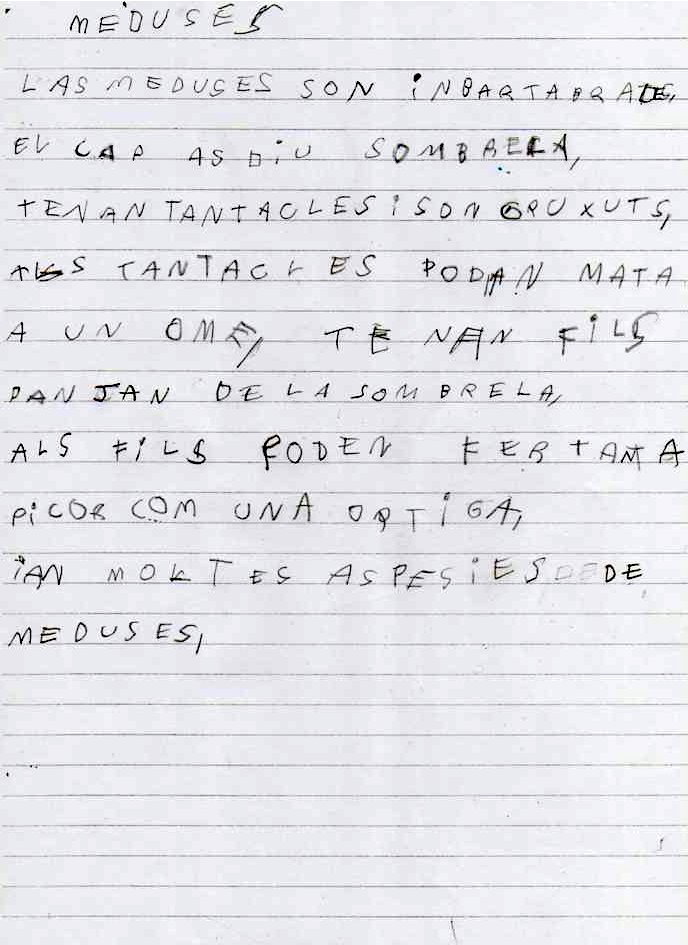 MEDUSES
LAS MEDUSES SON iNBARTABRADES,
EL CAP AS DiU SOMBRELA,
TENAN TANTACLES i SON GRUXUTS,
ALS TANTACLES PODAN MATA
A UN OME, TENAN FiLS
PANJAN DE LA SOMBRELA,
ALS FiLS PODEN FER TANTA
PiCOR COM UNA ORTiGA,
iAN MOLTES ASPESiES DE
MEDUSES,